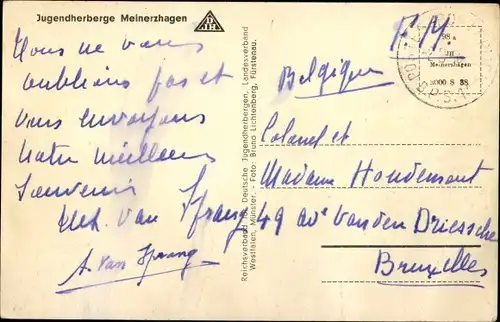 Jugendherberge Meinerzhagen
DJH
Nous ne vous
oublions pas et
vous envoyons
notre meilleur
Souvenir
Van Sprang
A. Van Sprang
Reichsverband für Deutsche Jugendherbergen, Landesverband
Westfalen, Münster. - Foto: Bruno Lichtenberg, Fürstenau.
F.M.
Meinerzhagen
Belgique
Colonel et
Madame Hondemont
49 av Van den Driessche
Bruxelles